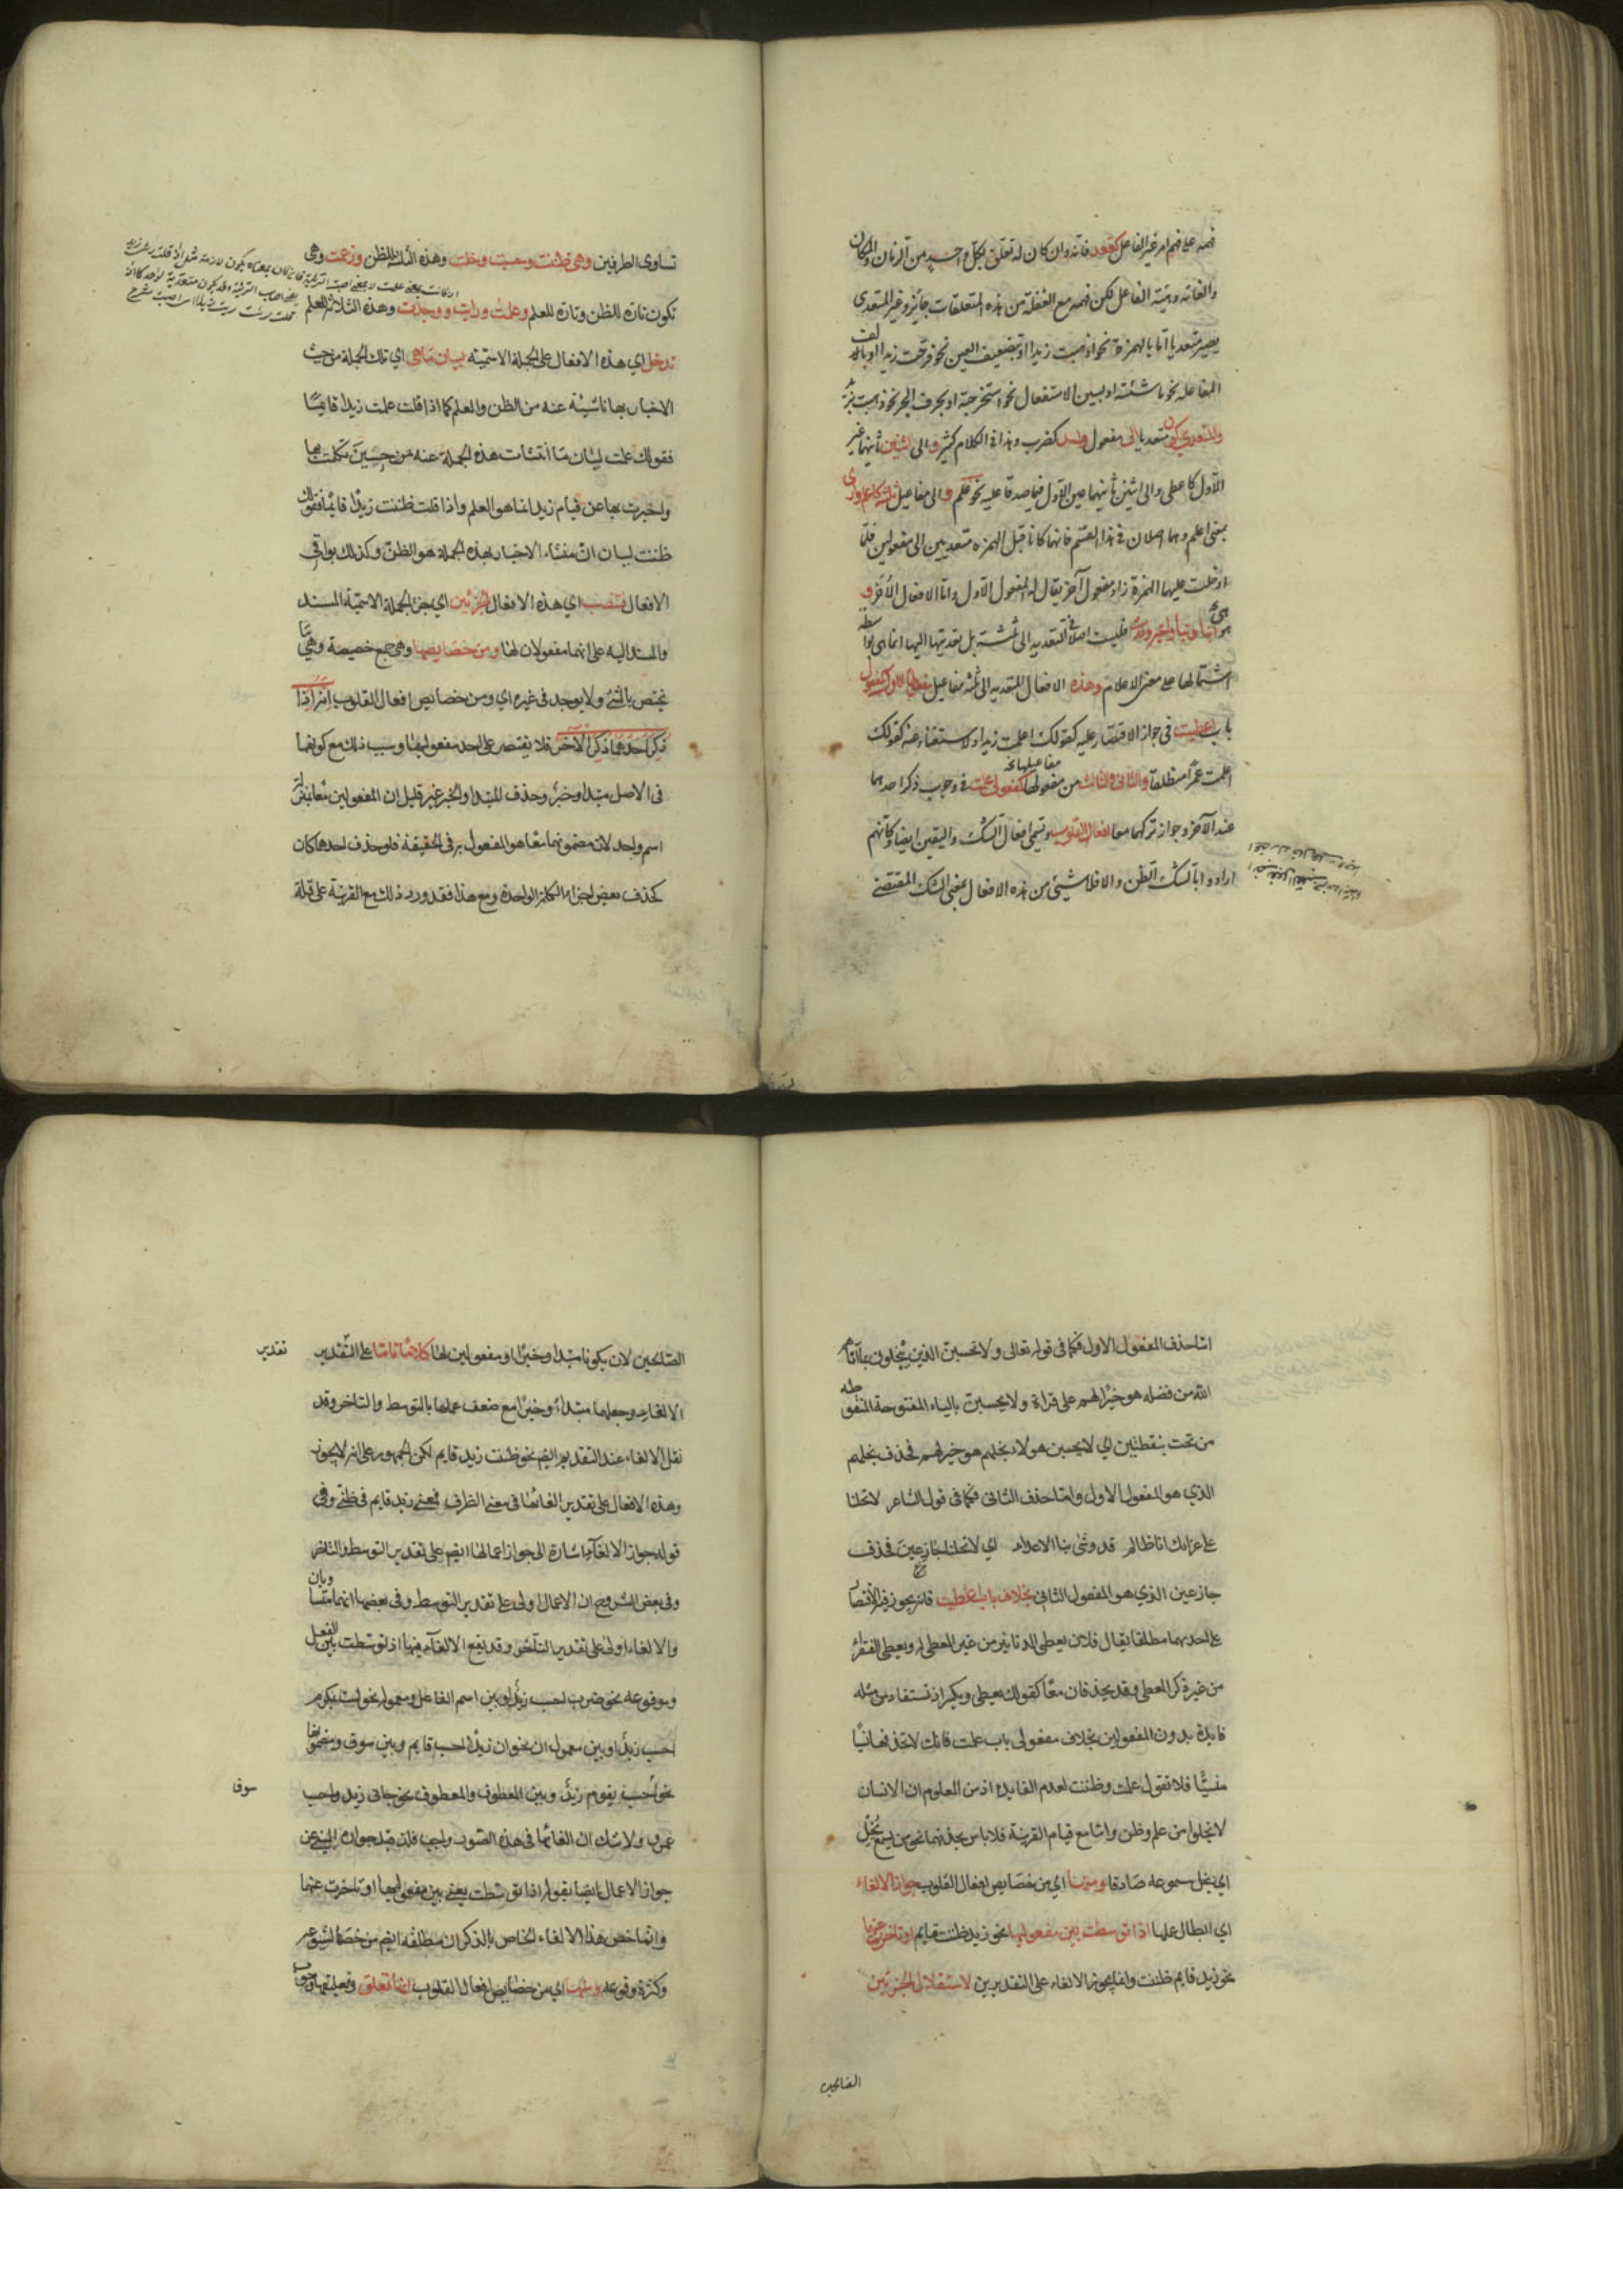 فهمه على فهم امر غير الفاعل كقعد فانه وان كان له تعلق بكل واحد من الزمان والمكان
والغاية وهيئة الفاعل لكن فهمه مع الغفلة عن هذه المتعلقات جائز وغير المتعدي
يصير متعديا اما بالهمزة نحو اذهبت زيدا او بتضعيف العين نحو فرحت زيدا او بالف
المفاعلة نحو ماشيته او بسين الاستفعال نحو استخرجته او بحرف الجر نحو ذهبت بزيد
والمتعدي يكون متعديا الى مفعول واحد كضرب وهذا في الكلام كثير و الى اثنين ثانيهما غير
الاول كاعطى والى اثنين ثانيهما عين الاول فيما صدقا عليه نحو علم و الى مفاعيل ثلثة كاعلم وارى
بمعنى اعلم وهما اصلان في هذا القسم فانهما كانا قبل الهمزة متعديين الى مفعولين فلما
ادخلت عليهما الهمزة زاد مفعول آخر يقال له المفعول الاول واما الافعال الأخر و
هي انبأ ونبأ واخبر وخبر وحدث فليست اصلا في التعدية الى ثلثة بل تعديتها اليها انما هي بواسطة
اشتمالها على معنى الاعلام وهذه الافعال المتعدية الى ثلثة مفاعيل مفعولها الاول كمفعول
باب اعطيت في جواز الاقتصار عليه كقولك اعلمت زيدا والاستغناء عنه كقولك
اعلمت عمرا منطلقا والثاني والثالث من مفعولها مفاعيلها نخ كمفعولي علمت في وجوب ذكر احدهما
عند الآخر وجواز تركهما معا افعال القلوب وتسمى افعال الشك واليقين ايضا وكانهم
ارادوا بالشك الظن والا فلا شيئ من هذه الافعال بمعنى الشك المقتضي
تساوى الطرفين وهي ظننت وحسبت وخلت وهذه الثلثة للظن وزعمت وهي
تكون تارة للظن وتارة للعلم وعلمت ورايت ووجدت وهذه الثلاثة للعلم
تدخل اي هذه الافعال على الجملة الاسمية لبيان ما هي اي تلك الجملة من حيث
الاخبار بها ناشئة عنه من الظن والعلم كما اذا قلت علمت زيدا قايما
فقولك علمت لبيان ما انشأت هذه الجملة عنه من حيث تكلمت بها
واخبرت بها عن قيام زيد انما هو العلم واذا قلت ظننت زيدا قايما فقولك
ظننت لبيان ان منشاء الاخبار بهذه الجملة هو الظن وكذلك بواقي
الافعال فتنصب اي هذه الافعال الجزئين اي جزئي الجملة الاسمية المسند
والمسند اليه على انهما مفعولان لها ومن خصايصها وهي جمع خصيصة وهي ما
يختص بالشئ ولا يوجد في غيره اي ومن خصايص افعال القلوب انه اذا
ذكر احدهما ذكر الآخر فلا يقتصر على احد مفعوليها وسبب ذلك مع كونهما
في الاصل مبتدا وخبرا وحذف المبتدا والخبر غير قليل ان المفعولين معا بمنزلة
اسم واحد لان مضمونهما معا هو المفعول به في الحقيقة فلو حذف احدهما كان
كحذف بعض اجزاء الكلمة الواحدة ومع هذا فقد ورد ذلك مع القرينة على قلة
اما حذف المفعول الاول فكما في قوله تعالى ولا تحسبن الذين يبخلون بما آتاهم
الله من فضله هو خيرا لهم على قراءة ولا يحسبن بالياء المفتوحة المنقوطة
من تحت بنقطتين اي لا يحسبن هؤلاء بخلهم هو خيرا لهم فحذف بخلهم
الذي هو المفعول الاول واما حذف الثاني فكما في قول الشاعر لا تخلنا
على غرائك انا طالم قد وشى بنا الاعداء اي لا تخلنا جازعين فحذف
جازعين الذي هو المفعول الثاني بخلاف باب اعطيت فانه يجوز فيه الاقتصار
على احدهما مطلقا يقال فلان يعطي الدنانير من غير المعطى له ويعطي الفقراء
من غير ذكر المعطى وقد يحذفان معا كقولك يعطي ويكسو اذ تستفاد من مثله
فايدة بدون المفعولين بخلاف مفعولي باب علمت فانك لا تحذفهما نسيا
منسيا فلا تقول علمت وظننت لعدم الفايدة اذ من المعلوم ان الانسان
لا يخلو من علم وظن واما مع قيام القرينة فلا باس بحذفهما نحو من يسمع يخل
اي يخل مسموعه صادقا ومنها اي من خصايص افعال القلوب جواز الالغاء
اي ابطال عملها اذا توسطت بين مفعوليها نحو زيد ظننت قايم او تاخرت عنهما
نحو زيد قايم ظننت وانما يجوز الالغاء على التقديرين لاستقلال الجزئين
الصالحين
الصالحين لان يكونا مبتدا وخبرا او مفعولين لها كلاما تاما على التقدير تقدير
الالغاء وجعلهما مبتداء وخبرا مع ضعف عملها بالتوسط والتاخر وقد
نقل الالغاء عند التقديم ايضا نحو ظننت زيد قايم لكن الجمهور على انه لا يجوز
وهذه الافعال على تقدير الغائها في معنى الظرف فمعنى زيد قايم في ظني وفي
قوله جواز الالغاء اشارة الى جواز اعمالها ايضا على تقدير التوسط والتاخر
وفي بعض الشروح ان الاعمال اولى على تقدير التوسط وفي بعضها انهما متساويان
والالغاء اولى على تقدير التاخر وقد يقع الالغاء فيها اذا توسطت بين الفعل
ومرفوعه نحو ضرب احسب زيد او بين اسم الفاعل ومعموله نحو لست بمكرم
احسب زيدا وبين معمول ان نحو ان زيدا احسب قايم وبين سوف ومصحوبها
نحو سوف احسب يقوم زيد وبين المعطوف والمعطوف نحو جاءني زيد واحسب
عمرو ولا شك ان الغائها في هذه الصور واجب فلذا قيد جوازه المبني عن
جواز الاعمال ايضا بقوله اذا توسطت يعني بين مفعوليها او تاخرت عنهما
وانما خص هذا الالغاء الخاص بالذكر ان مطلقه ايضا من خصايصها لشيوعه
وكثرة وقوعه ومنها اي من خصايص افعال القلوب انها تعلق وتعليقها وجوب